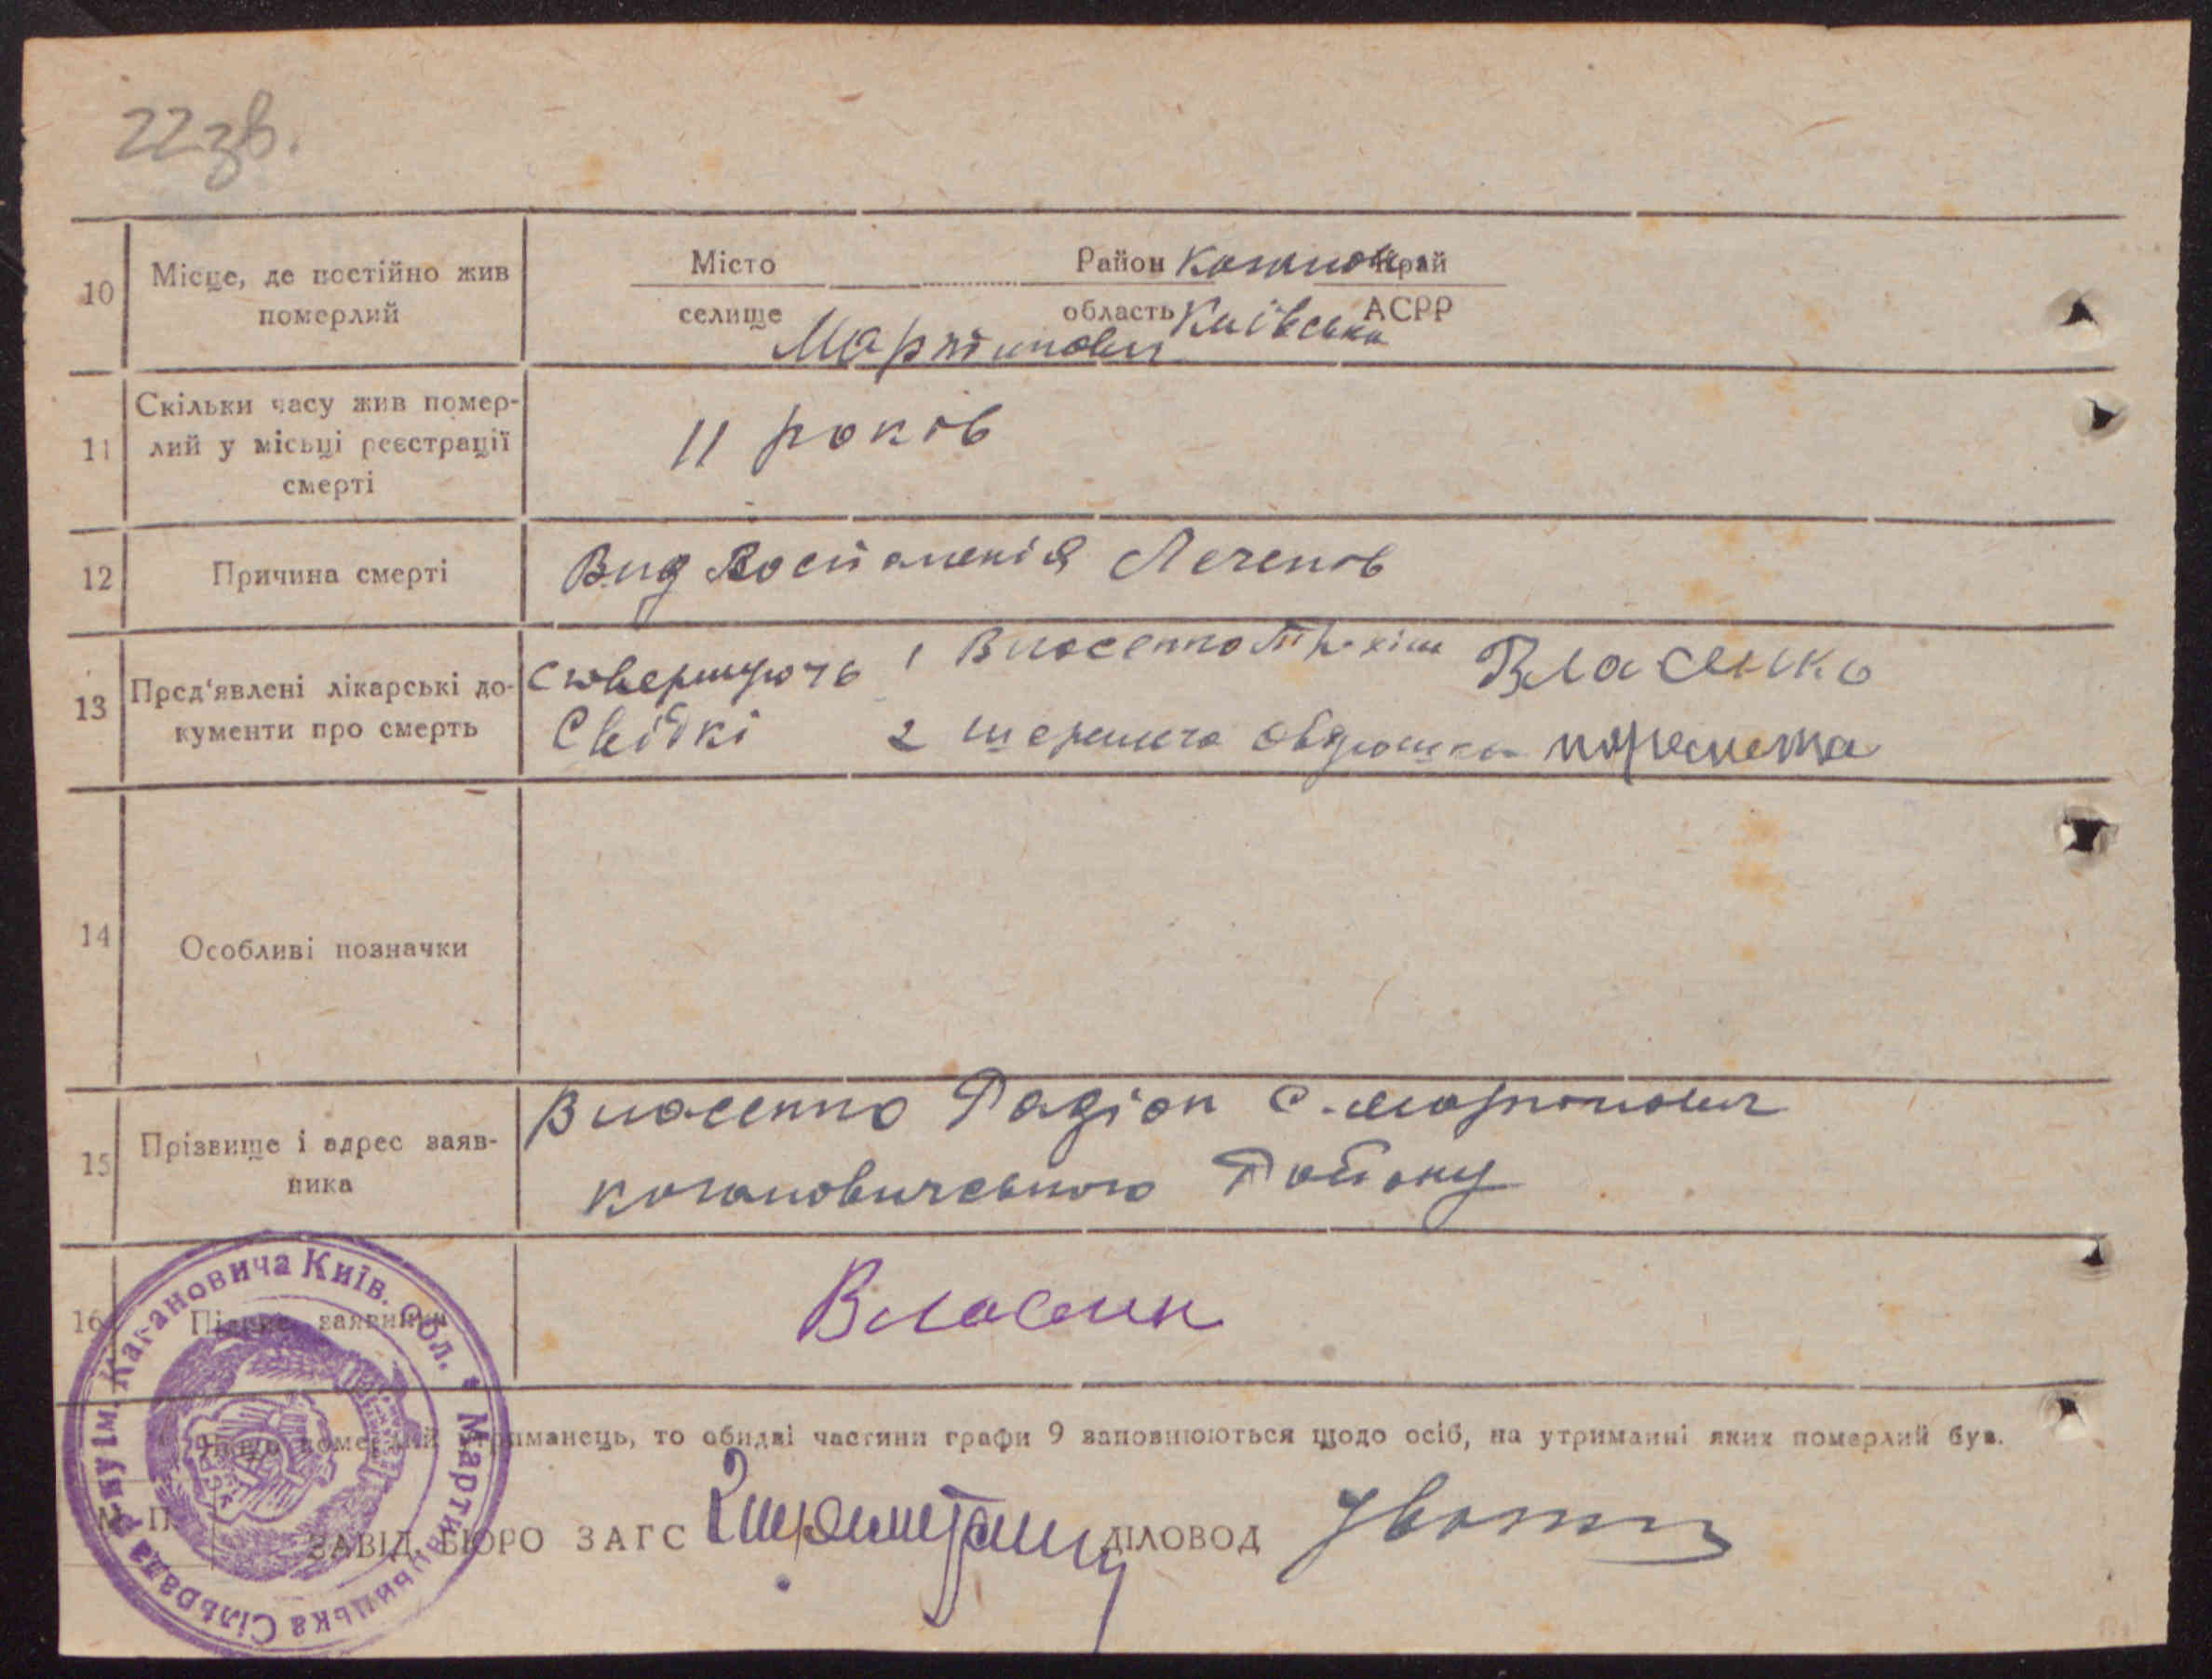 22 зв.
10 Місце, де постійно жив померлий
Місто Район Край
селище область Київська АСРР
Мартинович
11 Скільки часу жив помер-
лий у місьці реєстрації
смерті
11 років
12 Причина смерті
Вид Воспаленія Легенів
13 Пред'явлені лікарські до-
кументи про смерть
1 Власенко Трохім Власенко
Свідкі 2
14 Особливі позначки
15 Прізвище і адрес заяв-
ника
Власенко Радіон с. Мартинович
Когановичського Району
16 Підпис заявника
Власенк
Якщо померлий утриманець, то обидві частини графи 9 заповнюються щодо осіб, на утриманні яких померлий був.
М. П.
ЗАВІД. БЮРО ЗАГС ДІЛОВОД
Мартиновицька Сільрада Р-ну ім. Кагановича Київ. Обл.